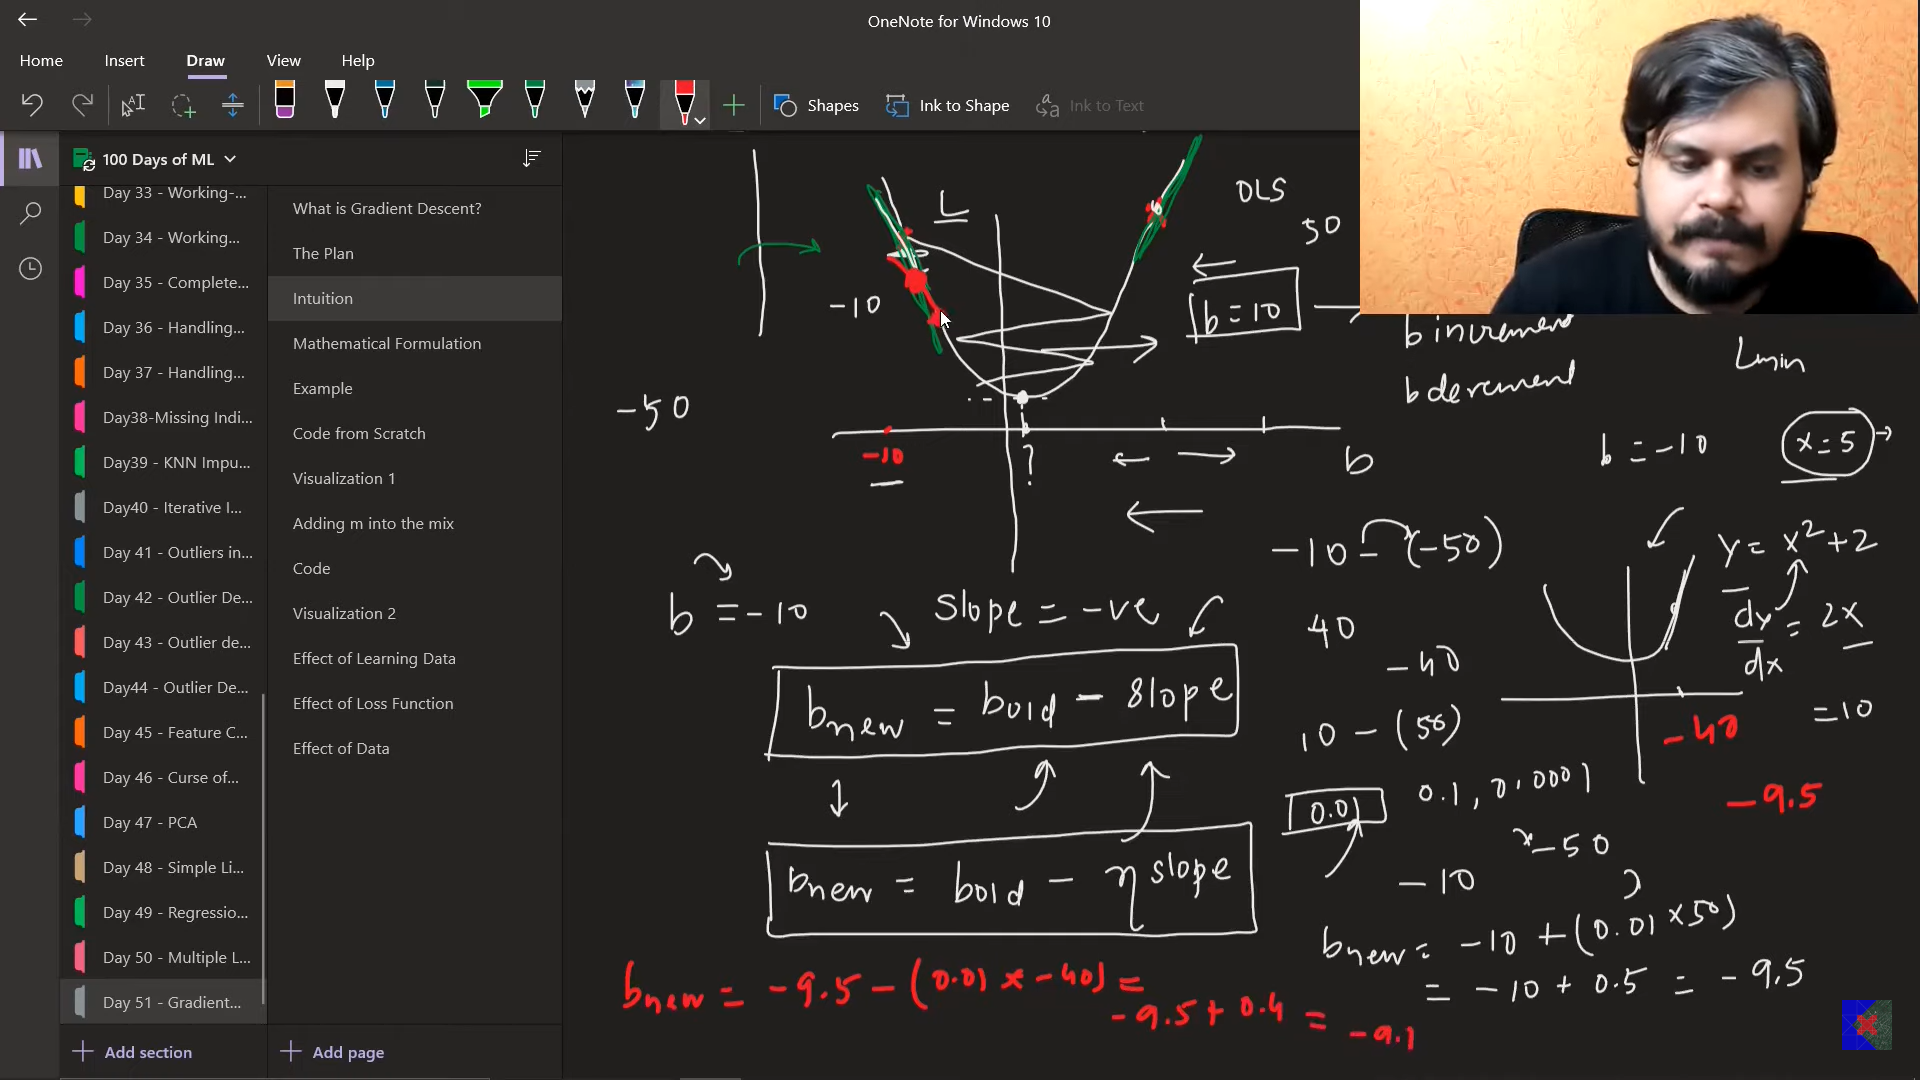 OneNote for Windows 10
Home Insert Draw View Help
Shapes Ink to Shape Ink to Text
100 Days of ML
Day 33 - Working-...
Day 34 - Working...
Day 35 - Complete...
Day 36 - Handling...
Day 37 - Handling...
Day38-Missing Indi...
Day39 - KNN Impu...
Day40 - Iterative I...
Day 41 - Outliers in...
Day 42 - Outlier De...
Day 43 - Outlier de...
Day44 - Outlier De...
Day 45 - Feature C...
Day 46 - Curse of...
Day 47 - PCA
Day 48 - Simple Li...
Day 49 - Regressio...
Day 50 - Multiple L...
Day 51 - Gradient...
Add section
What is Gradient Descent?
The Plan
Intuition
Mathematical Formulation
Example
Code from Scratch
Visualization 1
Adding m into the mix
Code
Visualization 2
Effect of Learning Data
Effect of Loss Function
Effect of Data
Add page
L
OLS
50
-10
b = 10
b increment
b decrement
Lmin
-50
-10
?
b
b = -10
x = 5
-10 - (-50)
y = x² + 2
b = -10
slope = -ve
40
dy/dx = 2x
-40
= 10
bnew = bold - slope
10 - (50)
-40
0.01
0.1, 0.0001
-9.5
x -50
-10
bnew = bold - η slope
bnew = -10 + (0.01 × 50)
= -10 + 0.5 = -9.5
bnew = -9.5 - (0.01 × -40) =
-9.5 + 0.4 = -9.1